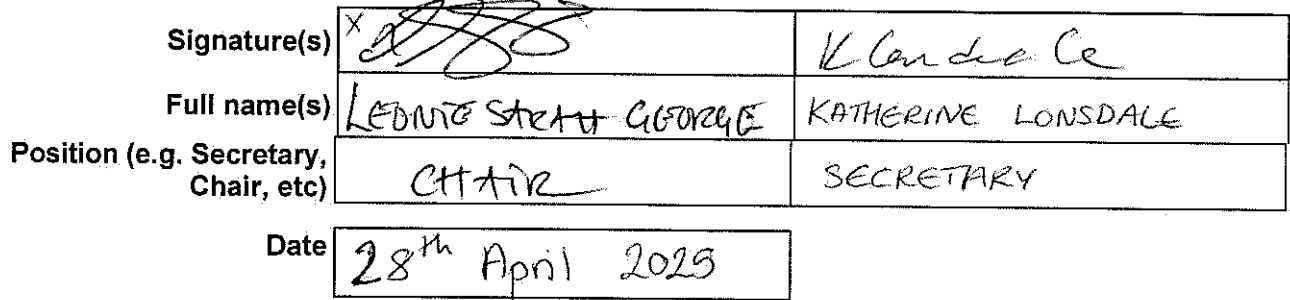 Signature(s) X K Lonsdale
Full name(s) LEONIE SARAH GEORGE KATHERINE LONSDALE
Position (e.g. Secretary,
Chair, etc) CHAIR SECRETARY
Date 28th April 2025